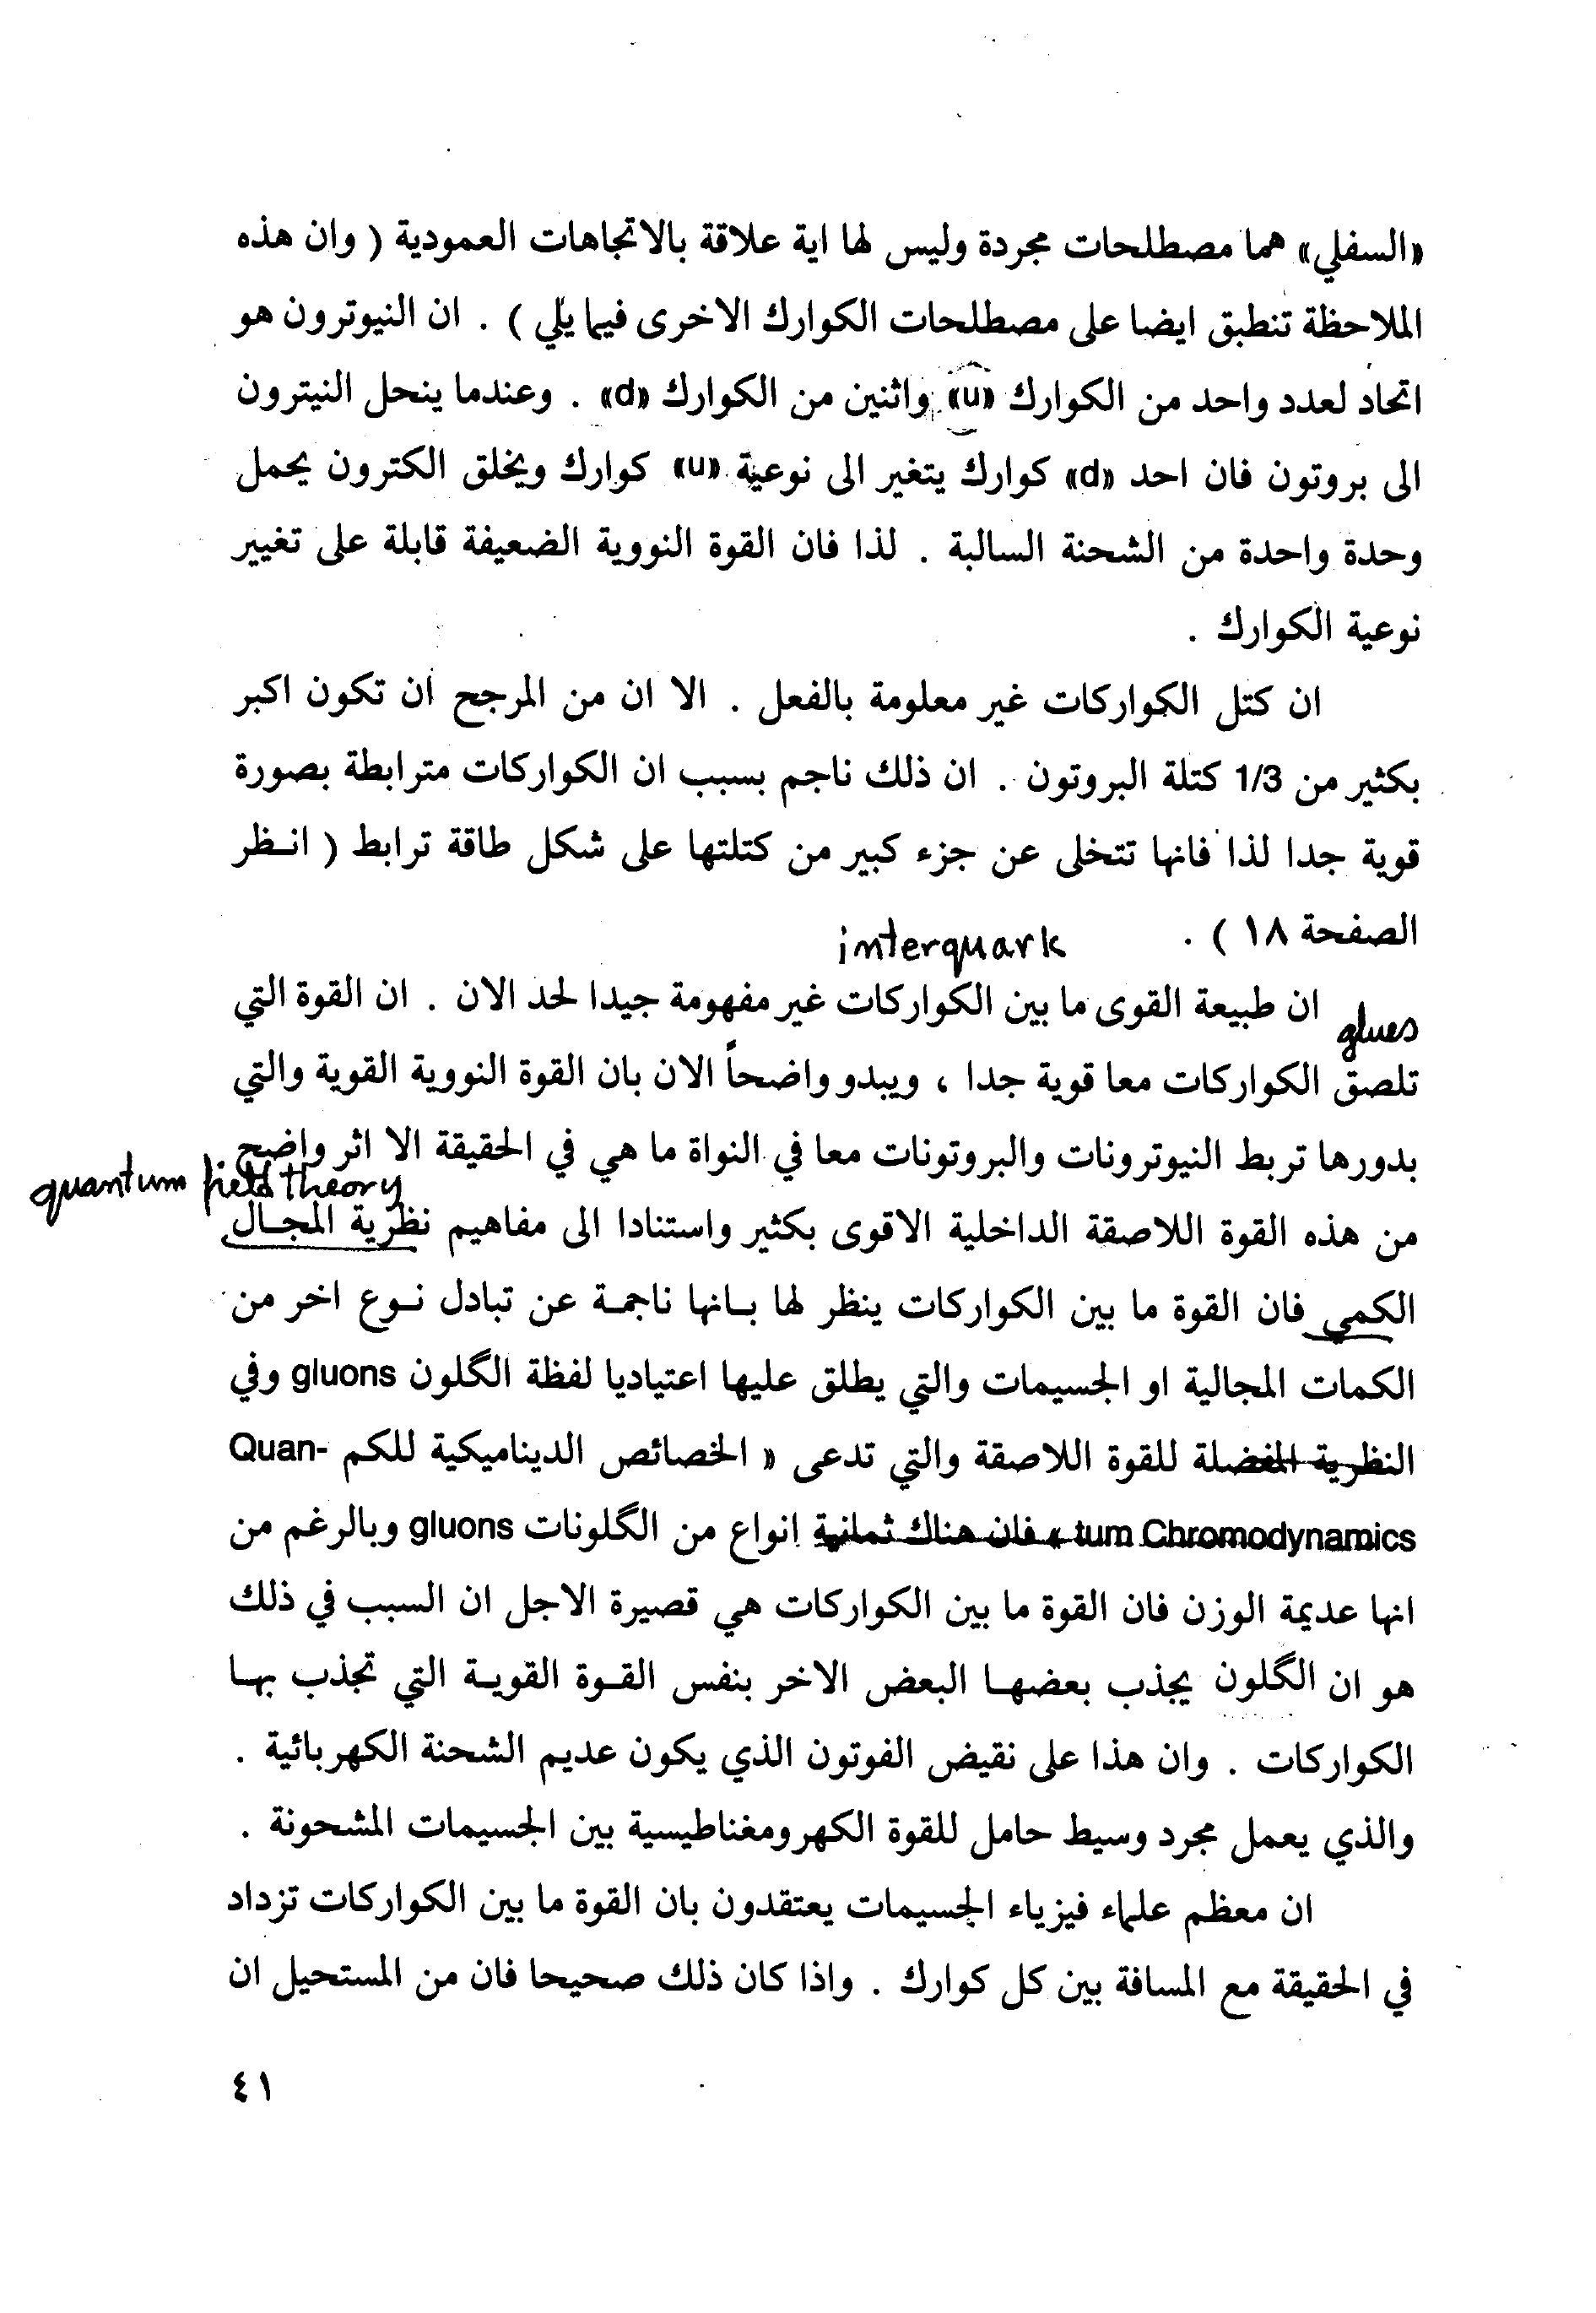 «السفلي» هما مصطلحات مجردة وليس لها اية علاقة بالاتجاهات العمودية ( وان هذه
الملاحظة تنطبق ايضا على مصطلحات الكوارك الاخرى فيما يلي ) . ان النيوترون هو
اتحاد لعدد واحد من الكوارك «u» واثنين من الكوارك «d» . وعندما ينحل النيترون
الى بروتون فان احد «d» كوارك يتغير الى نوعية «u» كوارك ويخلق الكترون يحمل
وحدة واحدة من الشحنة السالبة . لذا فان القوة النووية الضعيفة قابلة على تغيير
نوعية الكوارك .
ان كتل الكواركات غير معلومة بالفعل . الا ان من المرجح ان تكون اكبر
بكثير من 1/3 كتلة البروتون . ان ذلك ناجم بسبب ان الكواركات مترابطة بصورة
قوية جدا لذا فانها تتخلى عن جزء كبير من كتلتها على شكل طاقة ترابط ( انـظر
الصفحة ١٨ ) .
interquark
ان طبيعة القوى ما بين الكواركات غير مفهومة جيدا لحد الان . ان القوة التي
glues
تلصق الكواركات معا قوية جدا ، ويبدو واضحاً الان بان القوة النووية القوية والتي
بدورها تربط النيوترونات والبروتونات معا في النواة ما هي في الحقيقة الا اثر واضح
quantum field theory
من هذه القوة اللاصقة الداخلية الاقوى بكثير واستنادا الى مفاهيم نظرية المجـال
الكمي فان القوة ما بين الكواركات ينظر لها بـانها ناجمـة عن تبادل نـوع اخر من
الكمات المجالية او الجسيمات والتي يطلق عليها اعتياديا لفظة الگلون gluons وفي
النظرية المفضلة للقوة اللاصقة والتي تدعى « الخصائص الديناميكية للكم Quan-
tum Chromodynamics » فان هناك ثمانية انواع من الگلونات gluons وبالرغم من
انها عديمة الوزن فان القوة ما بين الكواركات هي قصيرة الاجل ان السبب في ذلك
هو ان الگلون يجذب بعضهـا البعض الاخر بنفس القـوة القويـة التي تجذب بهـا
الكواركات . وان هذا على نقيض الفوتون الذي يكون عديم الشحنة الكهربائية .
والذي يعمل مجرد وسيط حامل للقوة الكهرومغناطيسية بين الجسيمات المشحونة .
ان معظم علماء فيزياء الجسيمات يعتقدون بان القوة ما بين الكواركات تزداد
في الحقيقة مع المسافة بين كل كوارك . واذا كان ذلك صحيحا فان من المستحيل ان
٤١